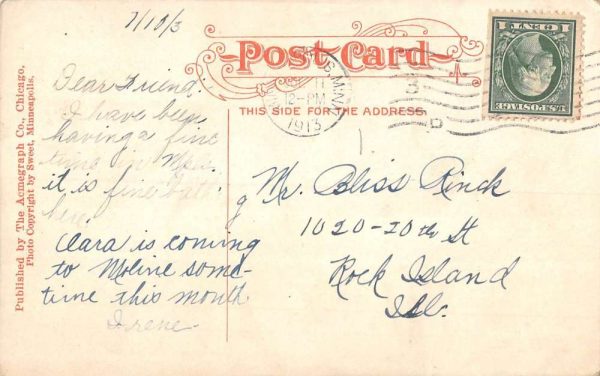 7/10/3
Post Card
THIS SIDE FOR THE ADDRESS
1 CENT 1
U.S. POSTAGE
MINN.
12-PM
1913
Published by The Acmegraph Co., Chicago.
Photo Copyright by Sweet, Minneapolis.
Dear Friend.
I have been
having a fine
time in
it is fine
here.
Clara is coming
to Moline some-
time this month
Irene.
Mr. Bliss Rinck
1020-20th St
Rock Island
Ill.